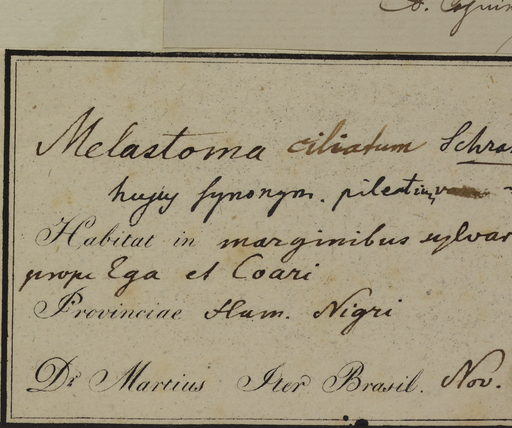 Melastoma ciliatum Schra
hujus synonym.
Habitat in marginibus sylvar
prope Ega et Coari
Provinciae Flum. Nigri
Dr. Martius Iter Brasil. Nov.